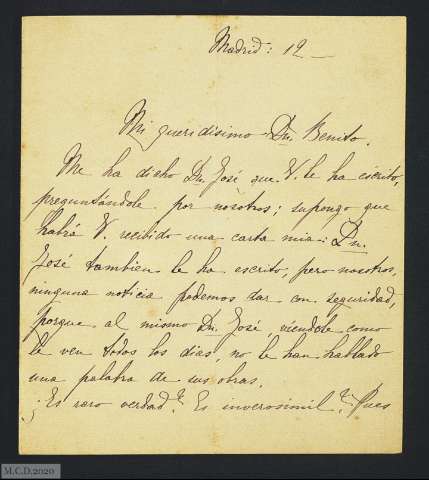 Madrid: 12
Mi queridisimo Dn. Benito.
Me ha dicho Dn. José que V. le ha escrito,
preguntándole por nosotros; supongo que
habrá V. recibido una carta mia: Dn.
José tambien le ha escrito, pero nosotros,
ninguna noticia podemos dar con seguridad,
porque al mismo Dn. José, viendole como
le ven todos los dias, no le han hablado
una palabra de sus obras.
¿Es raro verdad? Es inverosimil? Pues
M.C.D.2020